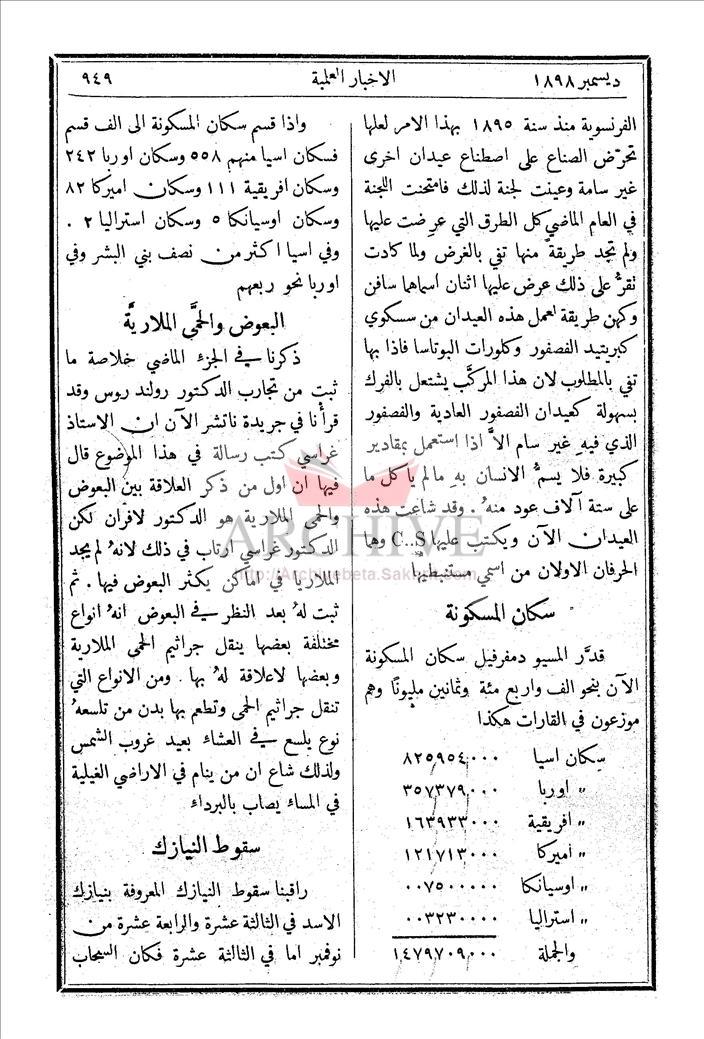 ديسمبر ١٨٩٨
الاخبار العلمية
٩٤٩
الفرنسوية منذ سنة ١٨٩٥ بهذا الامر لعلها
تحرّض الصناع على اصطناع عيدان اخرى
غير سامة وعينت لجنة لذلك فامتحنت اللجنة
في العام الماضي كل الطرق التي عرضت عليها
ولم تجد طريقة منها تفي بالغرض ولما كادت
نقرُّ على ذلك عرض عليها اثنان اسماهما سافن
وكهن طريقة لعمل هذه العيدان من سسكوي
كبريتيد الفصفور وكلورات البوتاسا فاذا بها
تفي بالمطلوب لان هذا المركَّب يشتعل بالفرك
بسهولة كعيدان الفصفور العادية والفصفور
الذي فيهِ غير سام الاَّ اذا استعمل بمقادير
كبيرة فلا يسمُّ الانسان بهِ ما لم ياكل ما
على ستة آلاف عود منهُ . وقد شاعت هذه
العيدان الآن ويكتب عليها C..S وها
الحرفان الاولان من اسمي مستنبطيها
سكان المسكونة
قدَّر المسيو دمفرفيل سكان المسكونة
الآن بنحو الف واربع مئة وثمانين مليونًا وهم
موزعون في القارات هكذا
سكان اسيا ٨٢٥٩٥٤٠٠٠
" اوربا ٣٥٧٣٧٩٠٠٠
" افريقية ١٦٣٩٣٣٠٠٠
" اميركا ١٢١٧١٣٠٠٠
" اوسيانكا ٠٠٧٥٠٠٠٠٠
" استراليا ٠٠٣٢٣٠٠٠٠
والجملة ١٤٧٩٧٠٩٠٠٠
واذا قسم سكان المسكونة الى الف قسم
فسكان اسيا منهم ٥٥٨ وسكان اوربا ٢٤٢
وسكان افريقية ١١١ وسكان اميركا ٨٢
وسكان اوسيانكا ٥ وسكان استراليا ٢ .
وفي اسيا اكثر من نصف بني البشر وفي
اوربا نحو ربعهم
البعوض والحمَّى الملاريَّة
ذكرنا في الجزء الماضي خلاصة ما
ثبت من تجارب الدكتور رولند روس وقد
قرأنا في جريدة ناتشر الآن ان الاستاذ
غراسي كتب رسالة في هذا الموضوع قال
فيها ان اول من ذكر العلاقة بين البعوض
والحمى الملارية هو الدكتور لافران لكن
الدكتور غراسي ارتاب في ذلك لانهُ لم يجد
الملاريا في اماكن يكثر البعوض فيها . ثم
ثبت لهُ بعد النظر في البعوض انهُ انواع
مختلفة بعضها ينقل جراثيم الحمى الملارية
وبعضها لا علاقة لهُ بها . ومن الانواع التي
تنقل جراثيم الحمى وتطعم بها بدن من تلسعهُ
نوع يلسع في العشاء بعيد غروب الشمس
ولذلك شاع ان من ينام في الاراضي الغيلية
في المساء يصاب بالبرداء
سقوط النيازك
راقبنا سقوط النيازك المعروفة بنيازك
الاسد في الثالثة عشرة والرابعة عشرة من
نوفمبر اما في الثالثة عشرة فكان السحاب
ARCHIVE